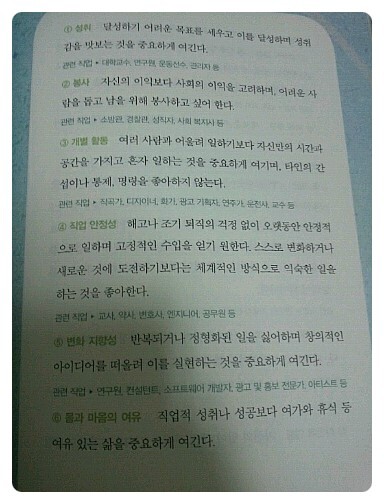 ① 성취 달성하기 어려운 목표를 세우고 이를 달성하며 성취
감을 맛보는 것을 중요하게 여긴다.
관련 직업 ▶ 대학교수, 연구원, 운동선수, 관리자 등
② 봉사 자신의 이익보다 사회의 이익을 고려하며, 어려운 사
람을 돕고 남을 위해 봉사하고 싶어 한다.
관련 직업 ▶ 소방관, 경찰관, 성직자, 사회 복지사 등
③ 개별 활동 여러 사람과 어울려 일하기보다 자신만의 시간과
공간을 가지고 혼자 일하는 것을 중요하게 여기며, 타인의 간
섭이나 통제, 명령을 좋아하지 않는다.
관련 직업 ▶ 작곡가, 디자이너, 화가, 광고 기획자, 연주가, 운전사, 교수 등
④ 직업 안정성 해고나 조기 퇴직의 걱정 없이 오랫동안 안정적
으로 일하며 고정적인 수입을 얻기 원한다. 스스로 변화하거나
새로운 것에 도전하기보다는 체계적인 방식으로 익숙한 일을
하는 것을 좋아한다.
관련 직업 ▶ 교사, 약사, 변호사, 엔지니어, 공무원 등
⑤ 변화 지향성 반복되거나 정형화된 일을 싫어하며 창의적인
아이디어를 떠올려 이를 실현하는 것을 중요하게 여긴다.
관련 직업 ▶ 연구원, 컨설턴트, 소프트웨어 개발자, 광고 및 홍보 전문가, 아티스트 등
⑥ 몸과 마음의 여유 직업적 성취나 성공보다 여가와 휴식 등
여유 있는 삶을 중요하게 여긴다.